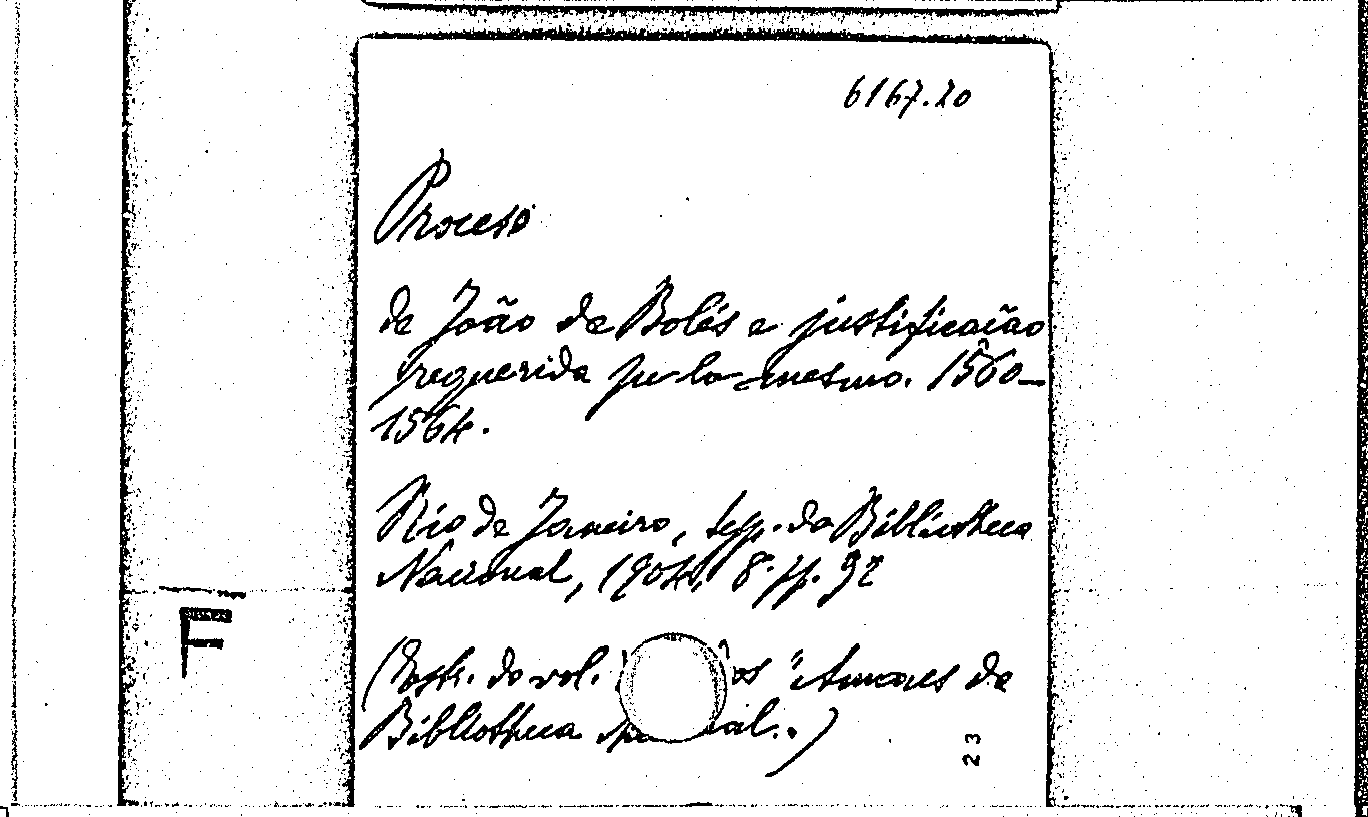 6167.20
Proceso
de João de Bolés e justificação
requerida pelo mesmo. 1560-
1564.
Rio de Janeiro, typ. da Bibliotheca
Nacional, 1904, 8. pp. 92
F
(Extr. do vol. os "Annaes da
Bibliotheca al.)
23